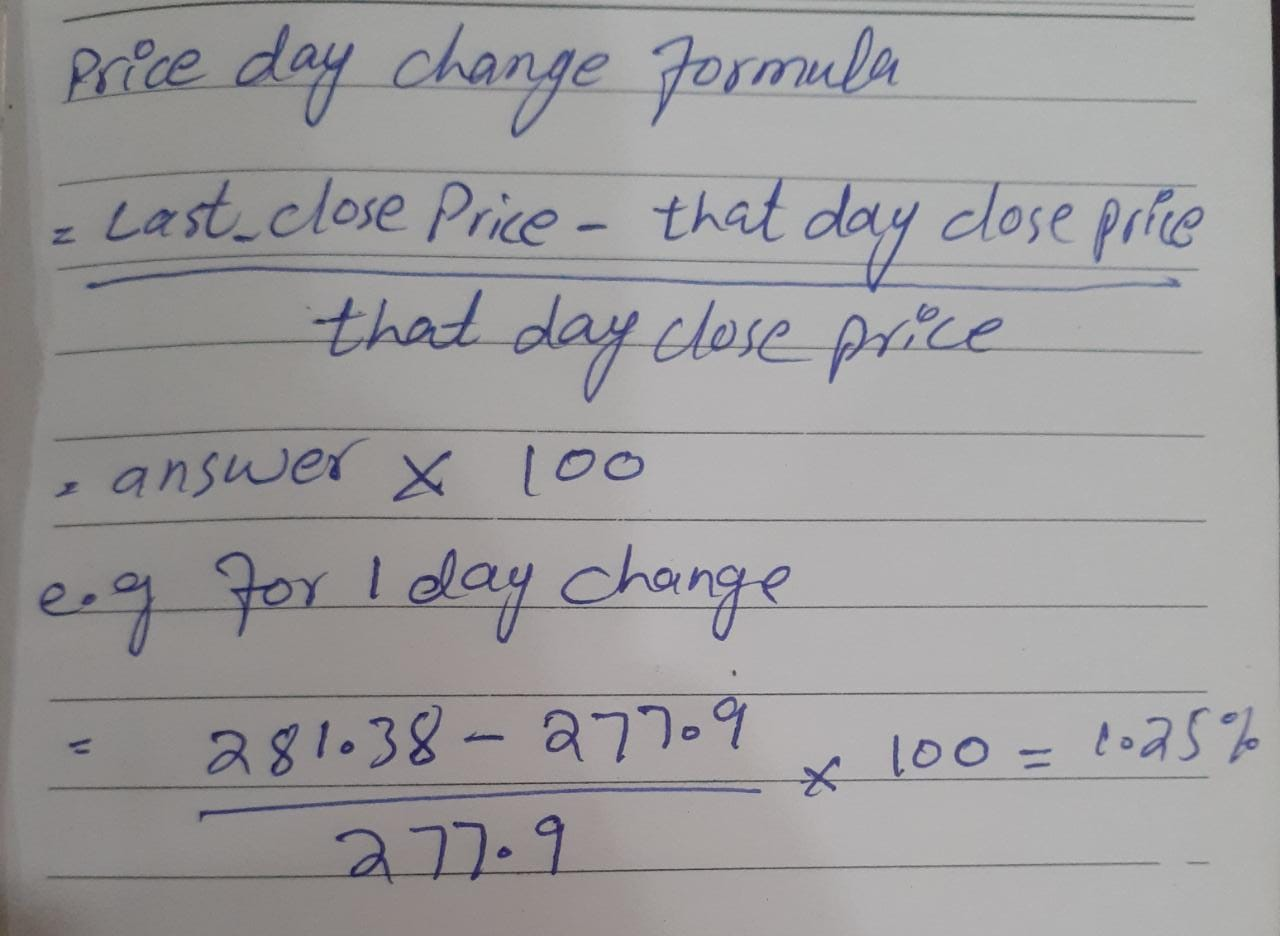 Price day change Formula
= Last_close Price - that day close price
that day close price
= answer x 100
e.g For 1 day change
= 281.38 - 277.9 x 100 = 1.25%
277.9